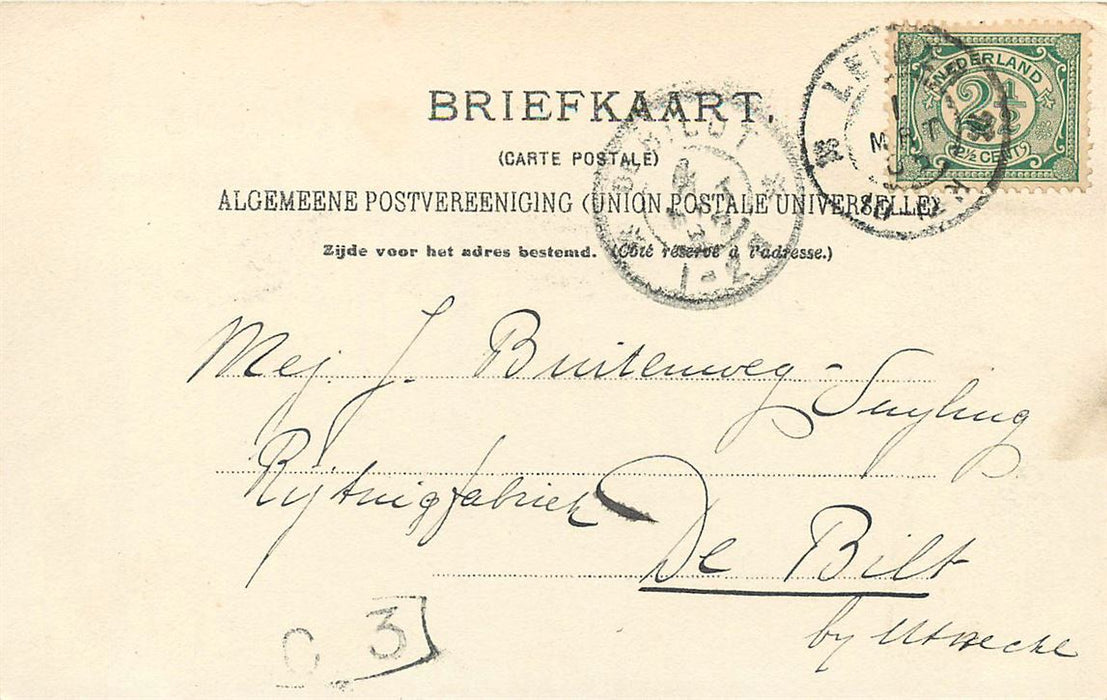 BRIEFKAART.
(CARTE POSTALE)
ALGEMEENE POSTVEREENIGING (UNION POSTALE UNIVERSELLE)
Zijde voor het adres bestemd. (Côté réservé à l'adresse.)
NEDERLAND
2½
2½ CENT
MRT
DE BILDT
1-2
Mej. J. Buitenweg-Suyling
Rijtuigfabriek
De Bilt
by Utrecht
C 3